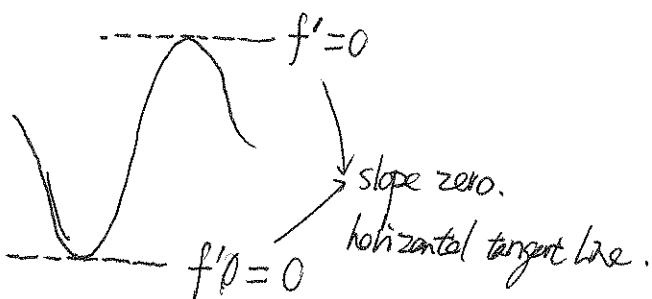 f'=0
slope zero.
horizontal tangent line.
f'()=0